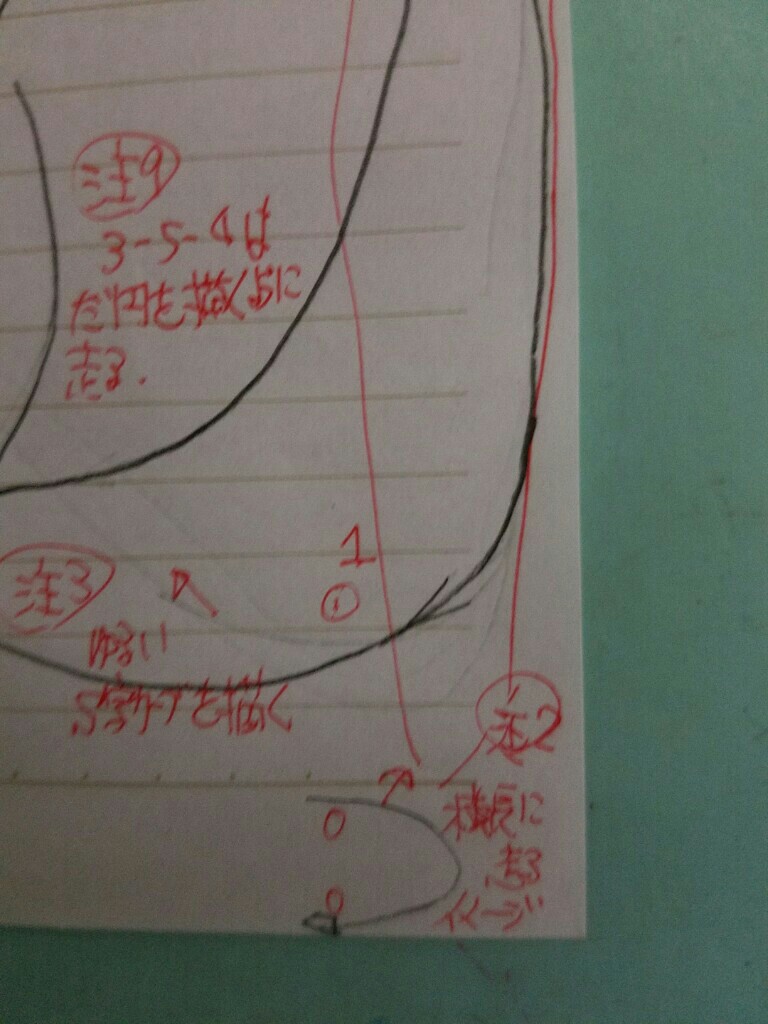 注9
3-5-4は
だ円を描くように
走る.
1
①
注3
ゆるい
S字カーブを描く
注2
横長に
走る
イメージ